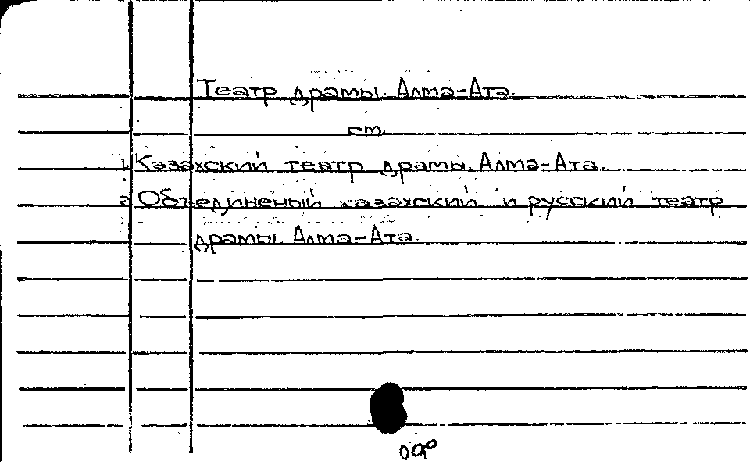 Театр драмы. Алма-Ата.
см.
1. Казахский театр драмы. Алма-Ата.
2. Объединеный казахский и русский театр
драмы. Алма-Ата.